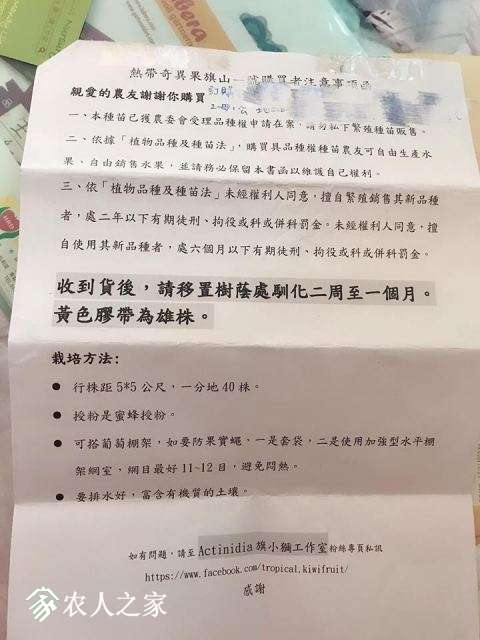 熱帶奇異果旗山一號購買者注意事項函
親愛的農友謝謝你購買
一、本種苗已獲農委會受理品種權申請在案，請勿私下繁殖種苗販售。
二、依據「植物品種及種苗法」，購買具品種權種苗農友可自由生產水
果、自由銷售水果，並請務必保留本書函以維護自己權利。
三、依「植物品種及種苗法」未經權利人同意，擅自繁殖銷售其新品種
者，處二年以下有期徒刑、拘役或科或併科罰金。未經權利人同意，擅
自使用其新品種者，處六個月以下有期徒刑、拘役或科或併科罰金。
收到貨後，請移置樹蔭處馴化二周至一個月。
黃色膠帶為雄株。
栽培方法:
● 行株距 5*5 公尺，一分地 40 株。
● 授粉是蜜蜂授粉。
● 可搭葡萄棚架，如要防果實蠅，一是套袋，二是使用加強型水平棚
架網室，網目最好 11~12 目，避免悶熱。
● 要排水好，富含有機質的土壤。
如有問題，請至 Actinidia 旗小獼工作室粉絲專頁私訊
https://www.facebook.com/tropical.kiwifruit/
感謝
农人之家